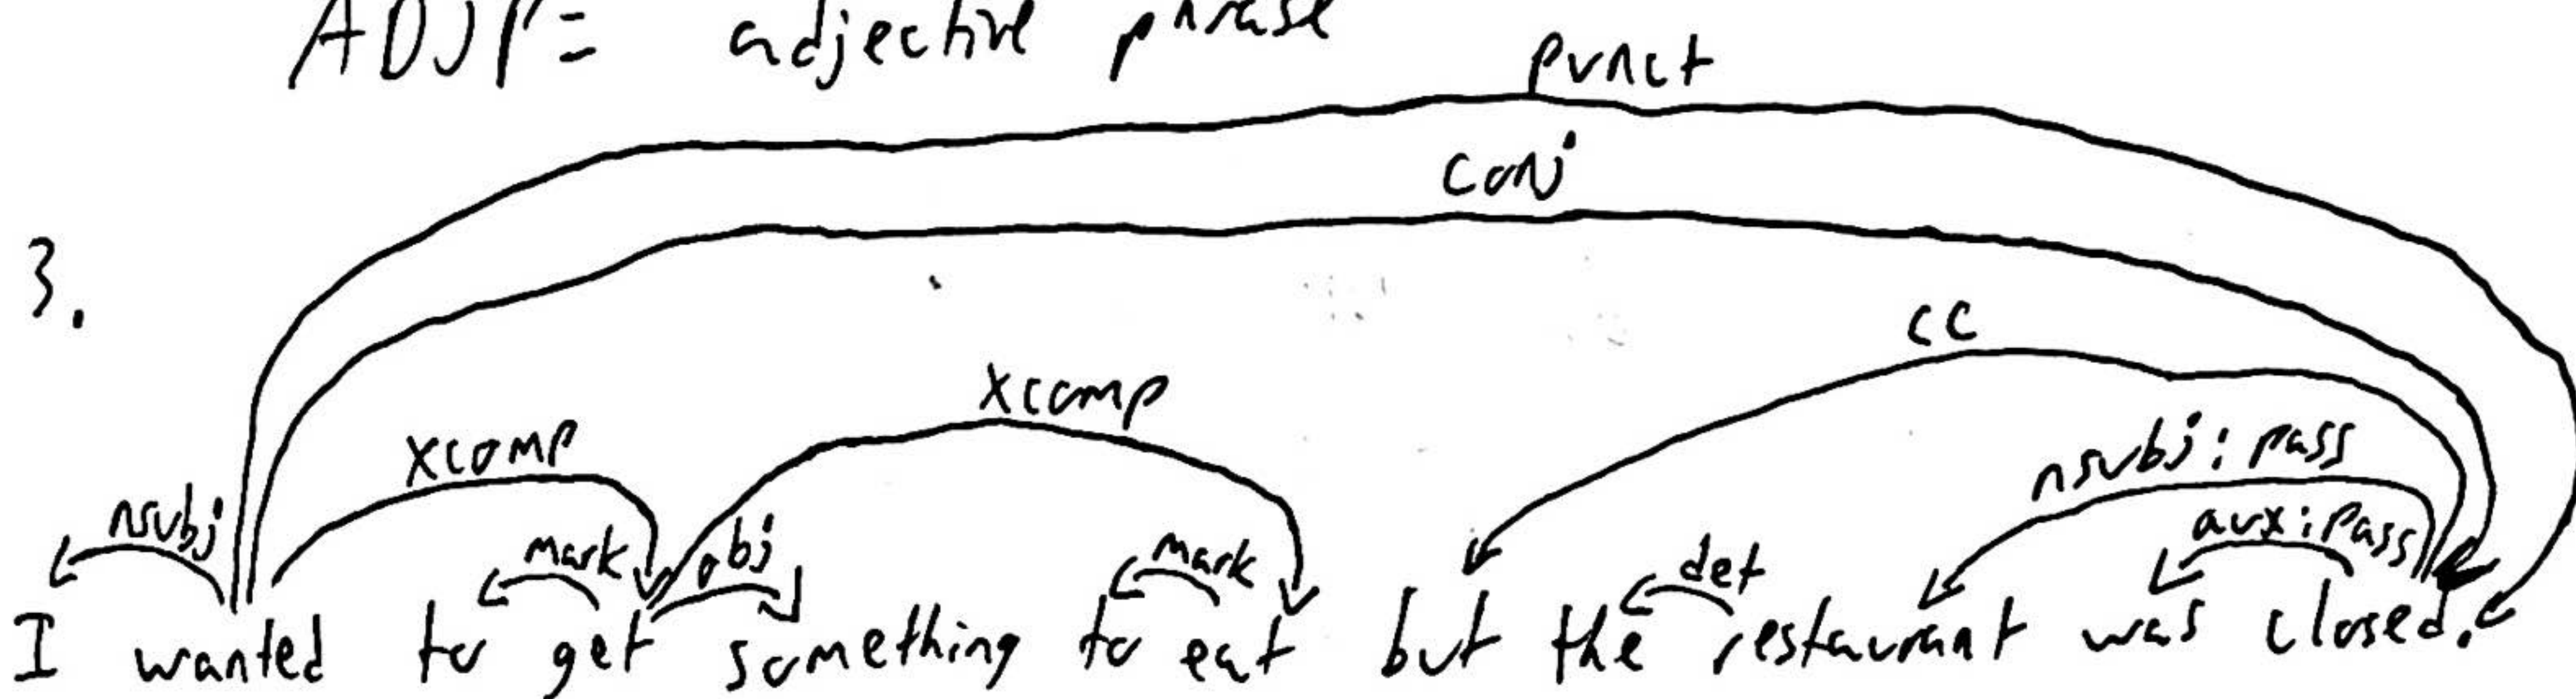 ADJP = adjective phrase
punct
conj
3.
cc
xcomp
xcomp
nsubj:pass
nsubj mark obj mark det aux:pass
I wanted to get something to eat but the restaurant was closed.